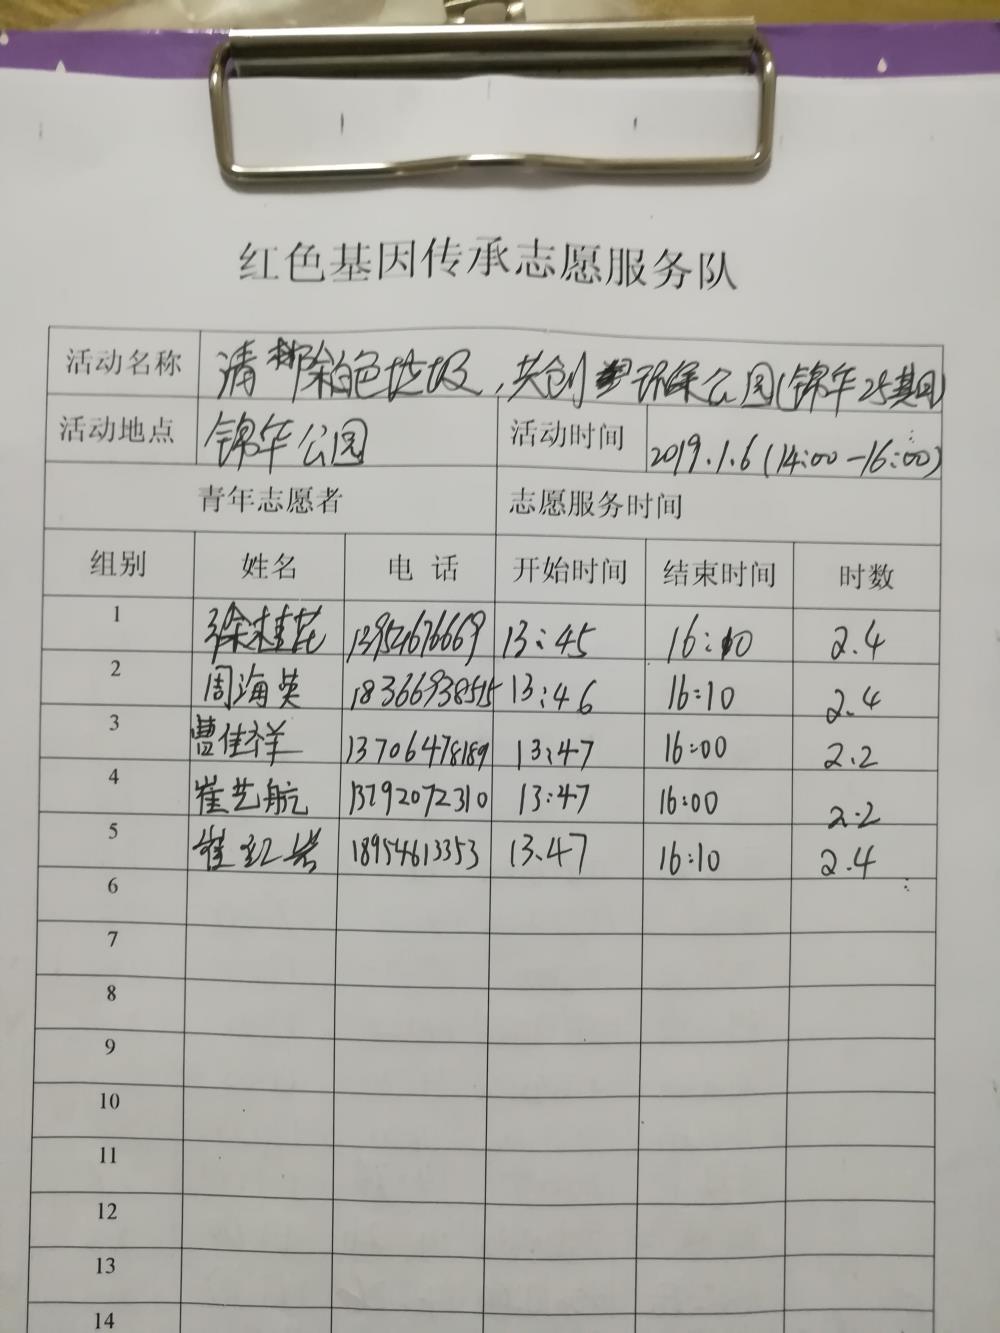 红色基因传承志愿服务队
活动名称 清除白色垃圾,共创环保公园(锦华25基因)
活动地点 锦华公园 活动时间 2019.1.6(14:00-16:00)
青年志愿者 志愿服务时间
组别 姓名 电 话 开始时间 结束时间 时数
1 徐桂花 13954676669 13:45 16:10 2.4
2 周海英 18366938515 13:46 16:10 2.4
3 曹佳祥 13706478189 13:47 16:00 2.2
4 崔艺航 13792072310 13:47 16:00 2.2
5 崔红岩 18954613353 13.47 16:10 2.4
6
7
8
9
10
11
12
13
14